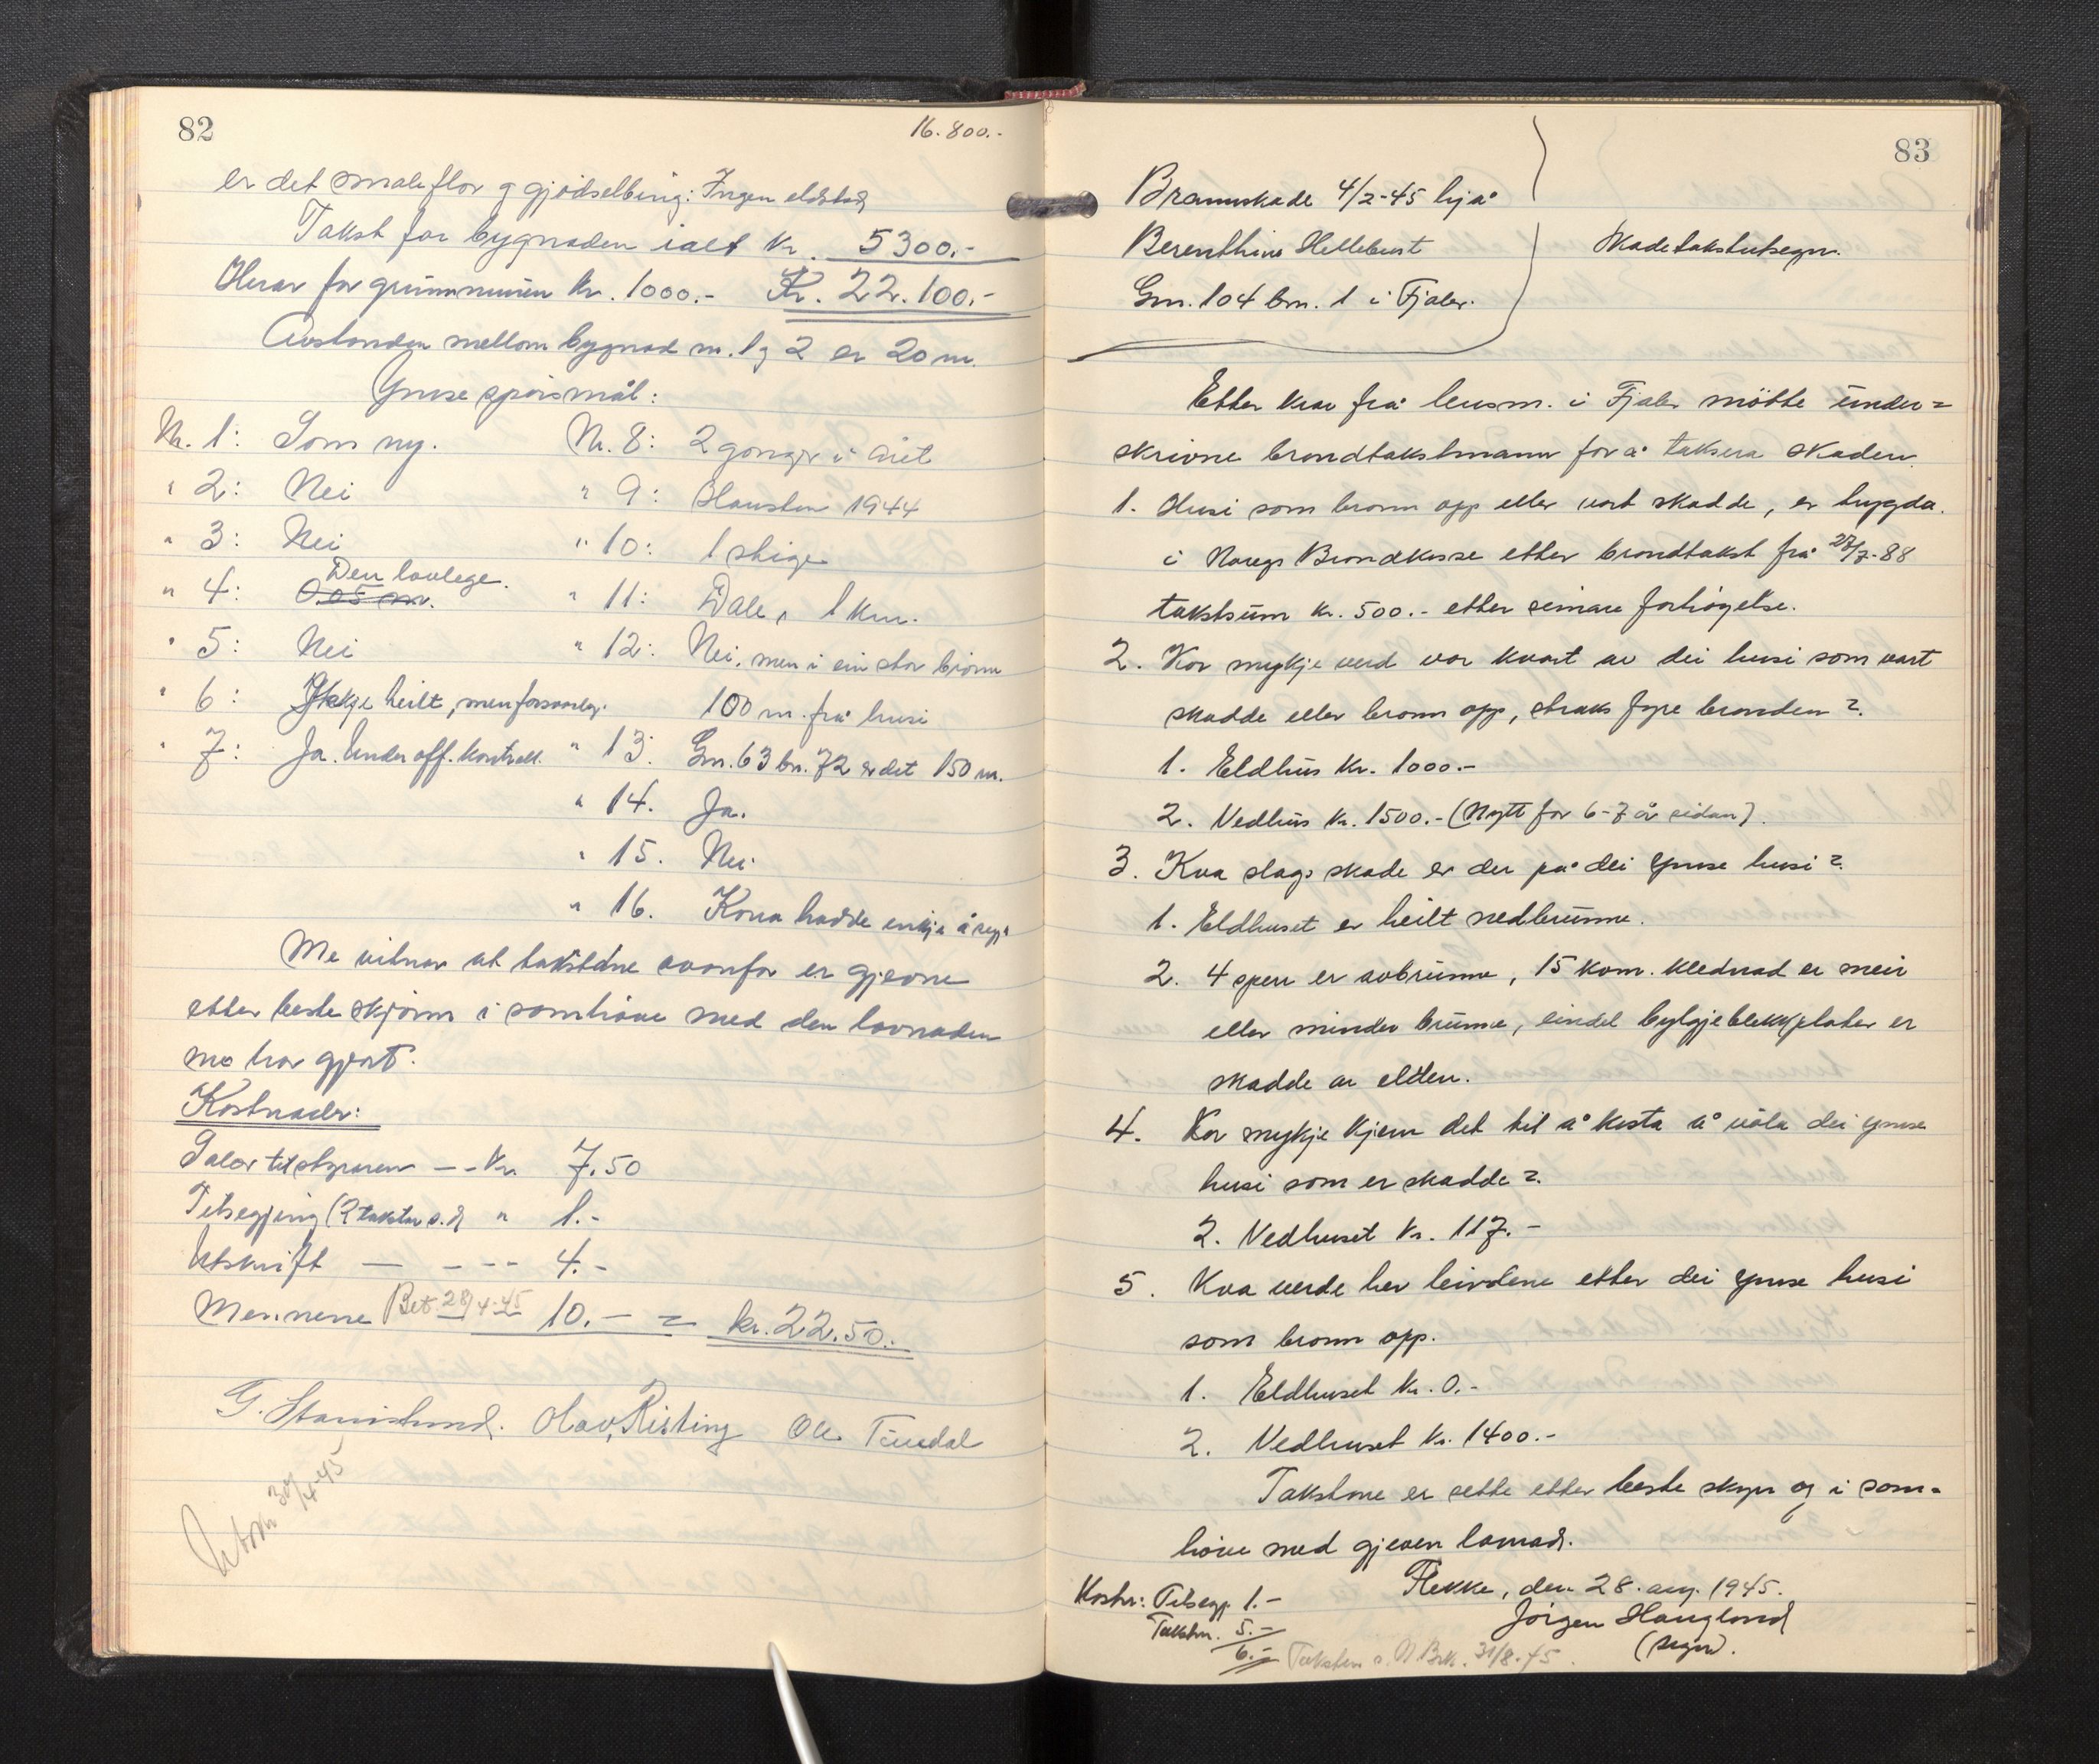 82
16.800.-
er det smalaflor og gjødselbing: Ingen eldstad
Takst for bygnaden ialt kr. 5300.-
Herav for grunnmuren kr. 1000.- Kr. 22.100.-
Avstanden mellom bygnad nr. 1 og 2 er 20 m.
Ymse spørsmål:
Nr. 1: Som ny.
" 2: Nei
" 3: Nei
" 4: Den lovlege.
" 5: Nei
" 6: Ikkje heilt, men forsvarleg.
" 7: Ja. Under off. kontroll.
Nr. 8: 2 gonger i året
" 9: Hausten 1944
" 10: 1 stige
" 11: Dale, 1 km.
" 12: Nei, men i ein stor brønn
100 m. frå husi
" 13: Gnr. 63 bnr. 72 er det 150 m.
" 14. Ja.
" 15. Nei.
" 16. Kona hadde inkje å segja
Me vitnar at takstane ovanfor er gjevne
etter beste skjønn i samhøve med den lovnaden
me har gjort.
Kostnader:
Salær til styraren -- kr. 7.50
Tilsegjing (2 takstar s.d) " 1.-
Utskrift — - -- 4.-
Mennene Bet. 28/4-45 10.- = kr. 22.50.
Olav Risting
Utskr 30/4-45
83
Brannskade 4/2-45 hjå
Berenthine Hellebust
Gnr. 104 bnr. 1 i Fjaler.
Skadetakstutsegn.
Etter krav frå lensm. i Fjaler møtte under=
skrivne brandtakstmann for å taksera skaden.
1. Husi som brann opp eller vart skadde, er trygda
i Noregs Brandkasse etter brandtakst frå 27/7-88
takstsum kr. 500.- etter seinare forhøgelse.
2. Kor mykje verd var kvart av dei husi som vart
skadde eller brann opp, straks fyre branden?
1. Eldhus kr. 1000.-
2. Vedhus kr. 1500.- (Nytt for 6-7 år sidan).
3. Kva slags skade er der på dei ymse husi?
1. Eldhuset er heilt nedbrunne.
2. 4 sperr er avbrunne, 15 kvm. klednad er meir
eller mindre brunne, eindel bylgjeblekkplater er
skadde av elden.
4. Kor mykje kjem det til å kosta å vøla dei ymse
husi som er skadde?
2. Vedhuset kr. 117.-
5. Kva verde hev leivdene etter dei ymse husi
som brann opp.
1. Eldhuset kr. 0.-
2. Vedhuset kr. 1400.-
Takstane er sette etter beste skyn og i sam-
høve med gjeven lovnad.
Flekke, den 28. aug. 1945.
Jørgen Haugland
(sign).
Kostn: Tilsegn. 1.-
Takstm. 5.-
6.- Taksten s. N. Brk. 31/8-45.